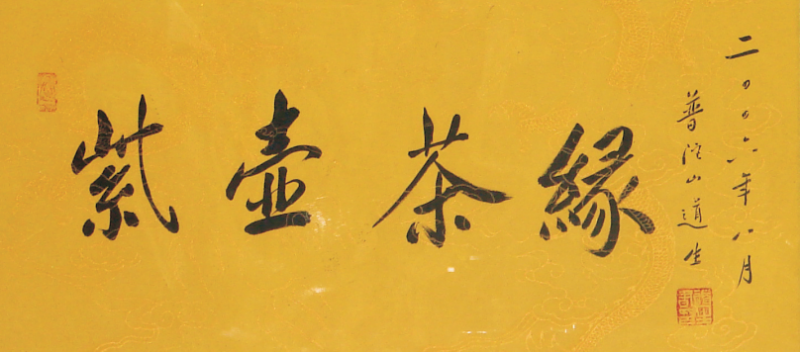 紫壺茶緣
二〇〇六年八月
普陀山道生